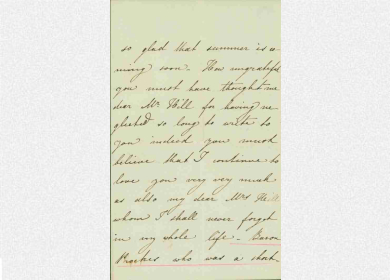 so glad that summer is co-
ming soon - How ungrateful
you must have thought me
dear Mr Hill for having ne
glected so long to write to
you indeed you must
believe that I continue to
love you very very much
as also my dear Mrs Hill
whom I shall never forget
in my whole life - Baron
who was a short